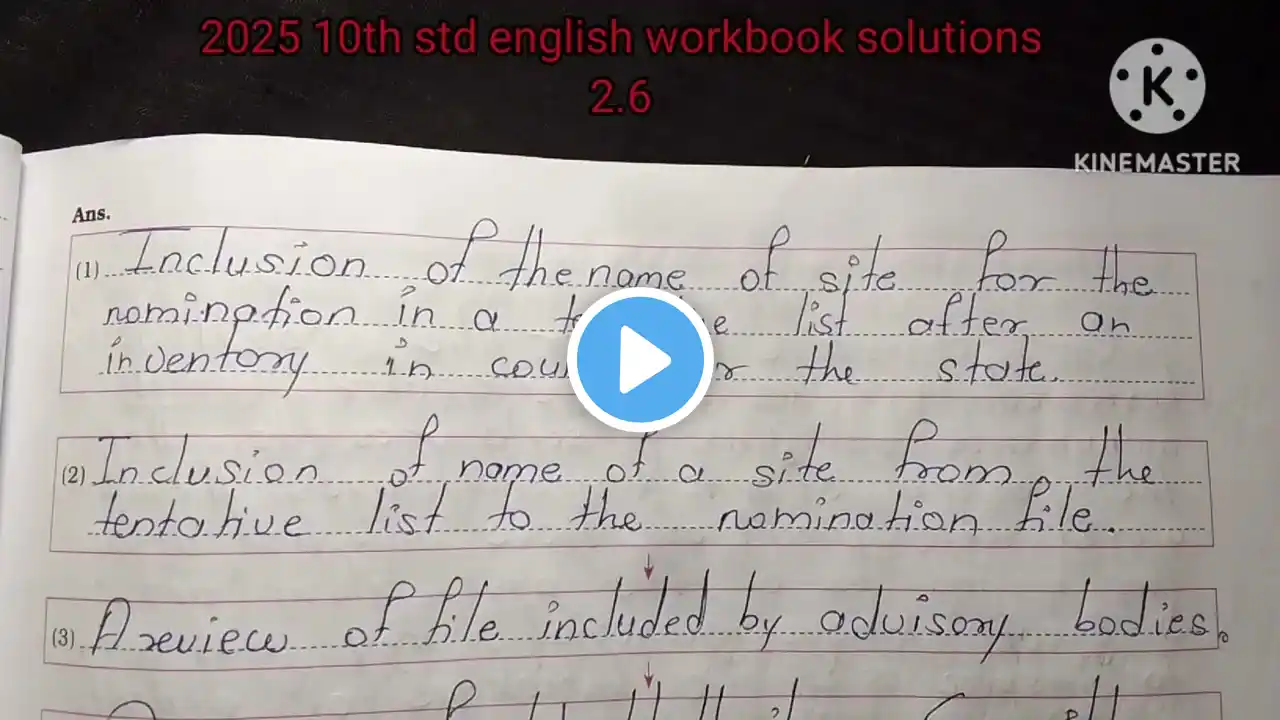 2025 10th std english workbook solutions
2.6
KINEMASTER
Ans.
(1) Inclusion of the name of site for the
nomination in a list after an
inventory in the state.
(2) Inclusion of name of a site from the
tentative list to the nomination file.
(3) A review of file included by advisory bodies.